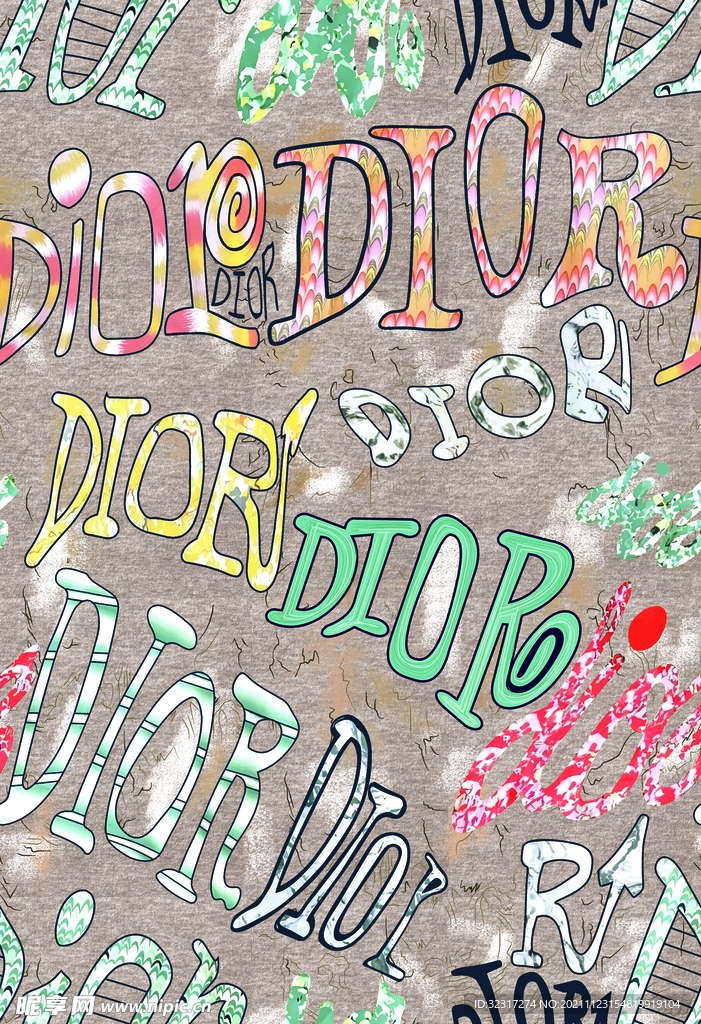 DIOR
DiOR
DIOR
DIOR
DIOR
DIOR
DIOR
dior
DIOR
dior
DIOR
DIOR
R
DIOR
昵享网 www.nipic.cn
ID:32317274 NO:20211123154819919104